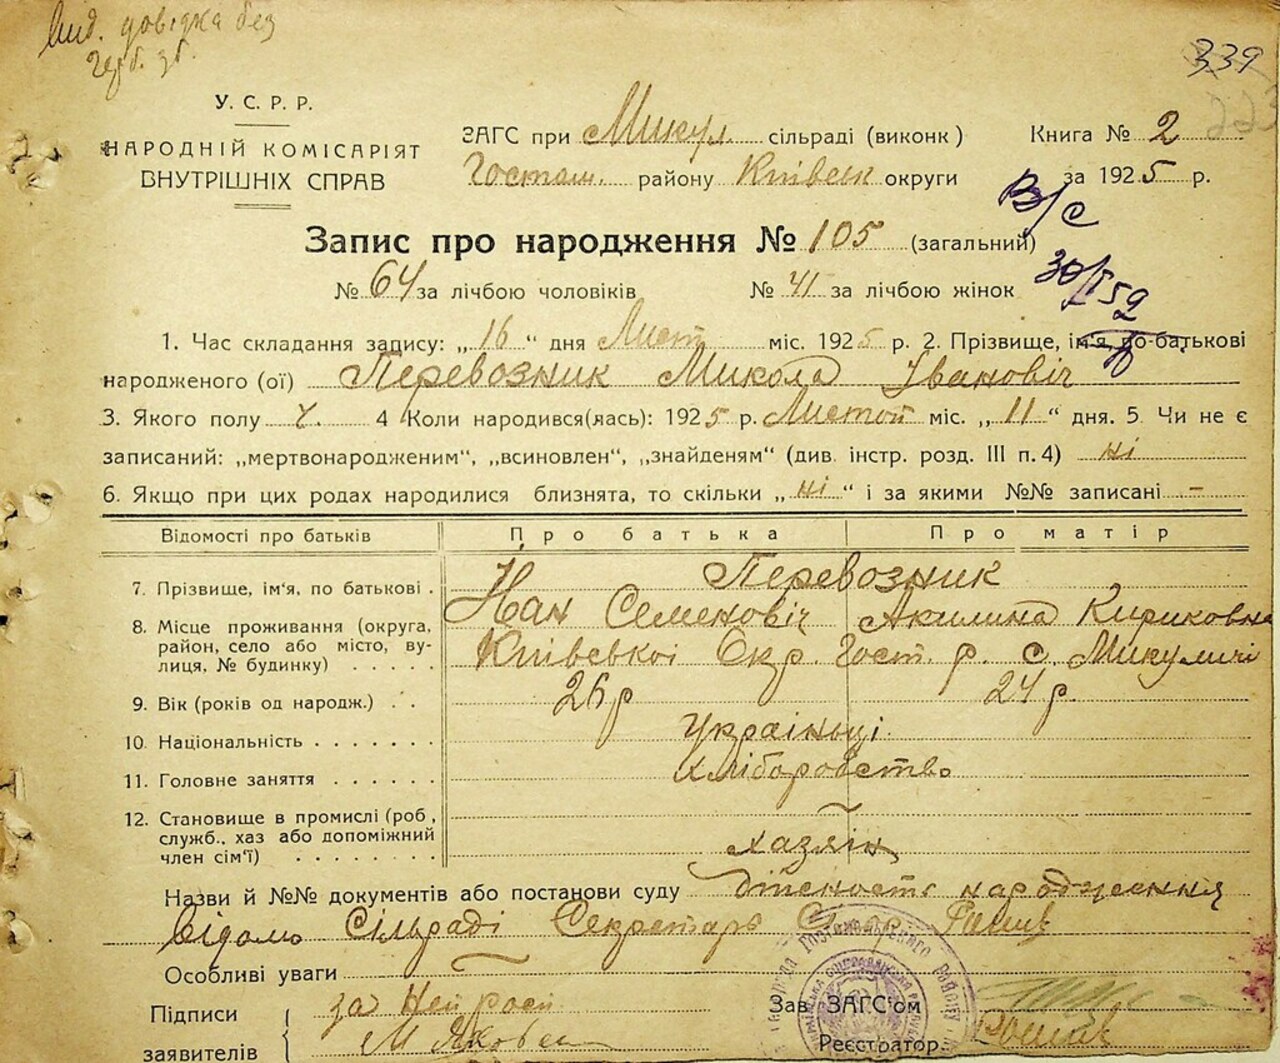 Вид. довідка без
герб. зб.
339
У. С. Р. Р.
НАРОДНІЙ КОМІСАРІЯТ
ВНУТРІШНІХ СПРАВ
ЗАГС при Микул. сільраді (виконк)
Книга № 2
Гостом. району Київськ округи
за 1925 р.
В/С
Запис про народження № 105 (загальний)
30/I 52
№ 64 за лічбою чоловіків № 41 за лічбою жінок
1. Час складання запису: „16“ дня Лист міс. 1925 р. 2. Прізвище, ім'я, по-батькові
народженого (ої) Перевозник Микола Івановіч
3. Якого полу Ч. 4 Коли народився(лась): 1925 р. Листоп міс. „11“ дня. 5. Чи не є
записаний: „мертвонародженим“, „всиновлен“, „знайденям“ (див. інстр. розд. III п. 4) ні
6. Якщо при цих родах народилися близнята, то скільки „ні“ і за якими №№ записані –
Відомості про батьків Про батька Про матір
7. Прізвище, ім'я, по батькові . Перевозник
Іван Семеновіч Акилина Кириковна
8. Місце проживання (округа, район, село або місто, вулиця, № будинку) . . . . . Київськоі Окр. Гост. р. с. Микуличі
9. Вік (років од народж.) . . 26 р 24 р.
10. Національність . . . . . . . Українці
11. Головне заняття . . . . . . Хліборобство
12. Становище в промислі (роб, служб., хаз або допоміжний член сім'ї) . . . . . . . . хазяін
Назви й №№ документів або постанови суду дійсность народження
відомо Сільраді Секретарь
Особливі уваги
Підписи
заявителів
за
Зав. ЗАГС'ом
Реєстратор: